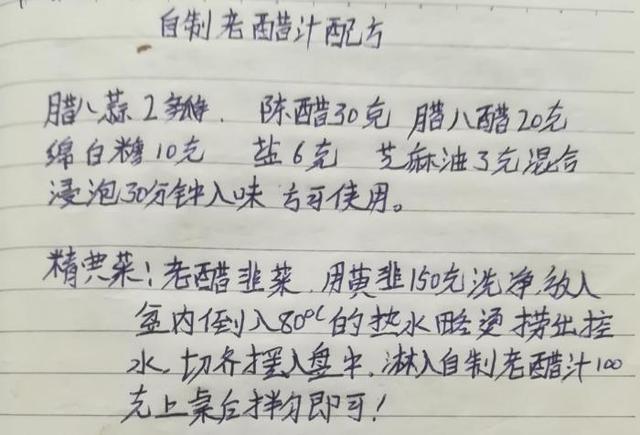 自制老醋汁配方
腊八蒜2瓣. 陈醋30克 腊八醋20克
绵白糖10克 盐6克 芝麻油3克混合
浸泡30分钟入味 方可使用。
精典菜:老醋韭菜.用黄韭150克洗净,放入
盆内倒入80℃的热水略烫 捞出控
水,切齐摆入盘中,淋入自制老醋汁100
克上桌后拌匀即可!